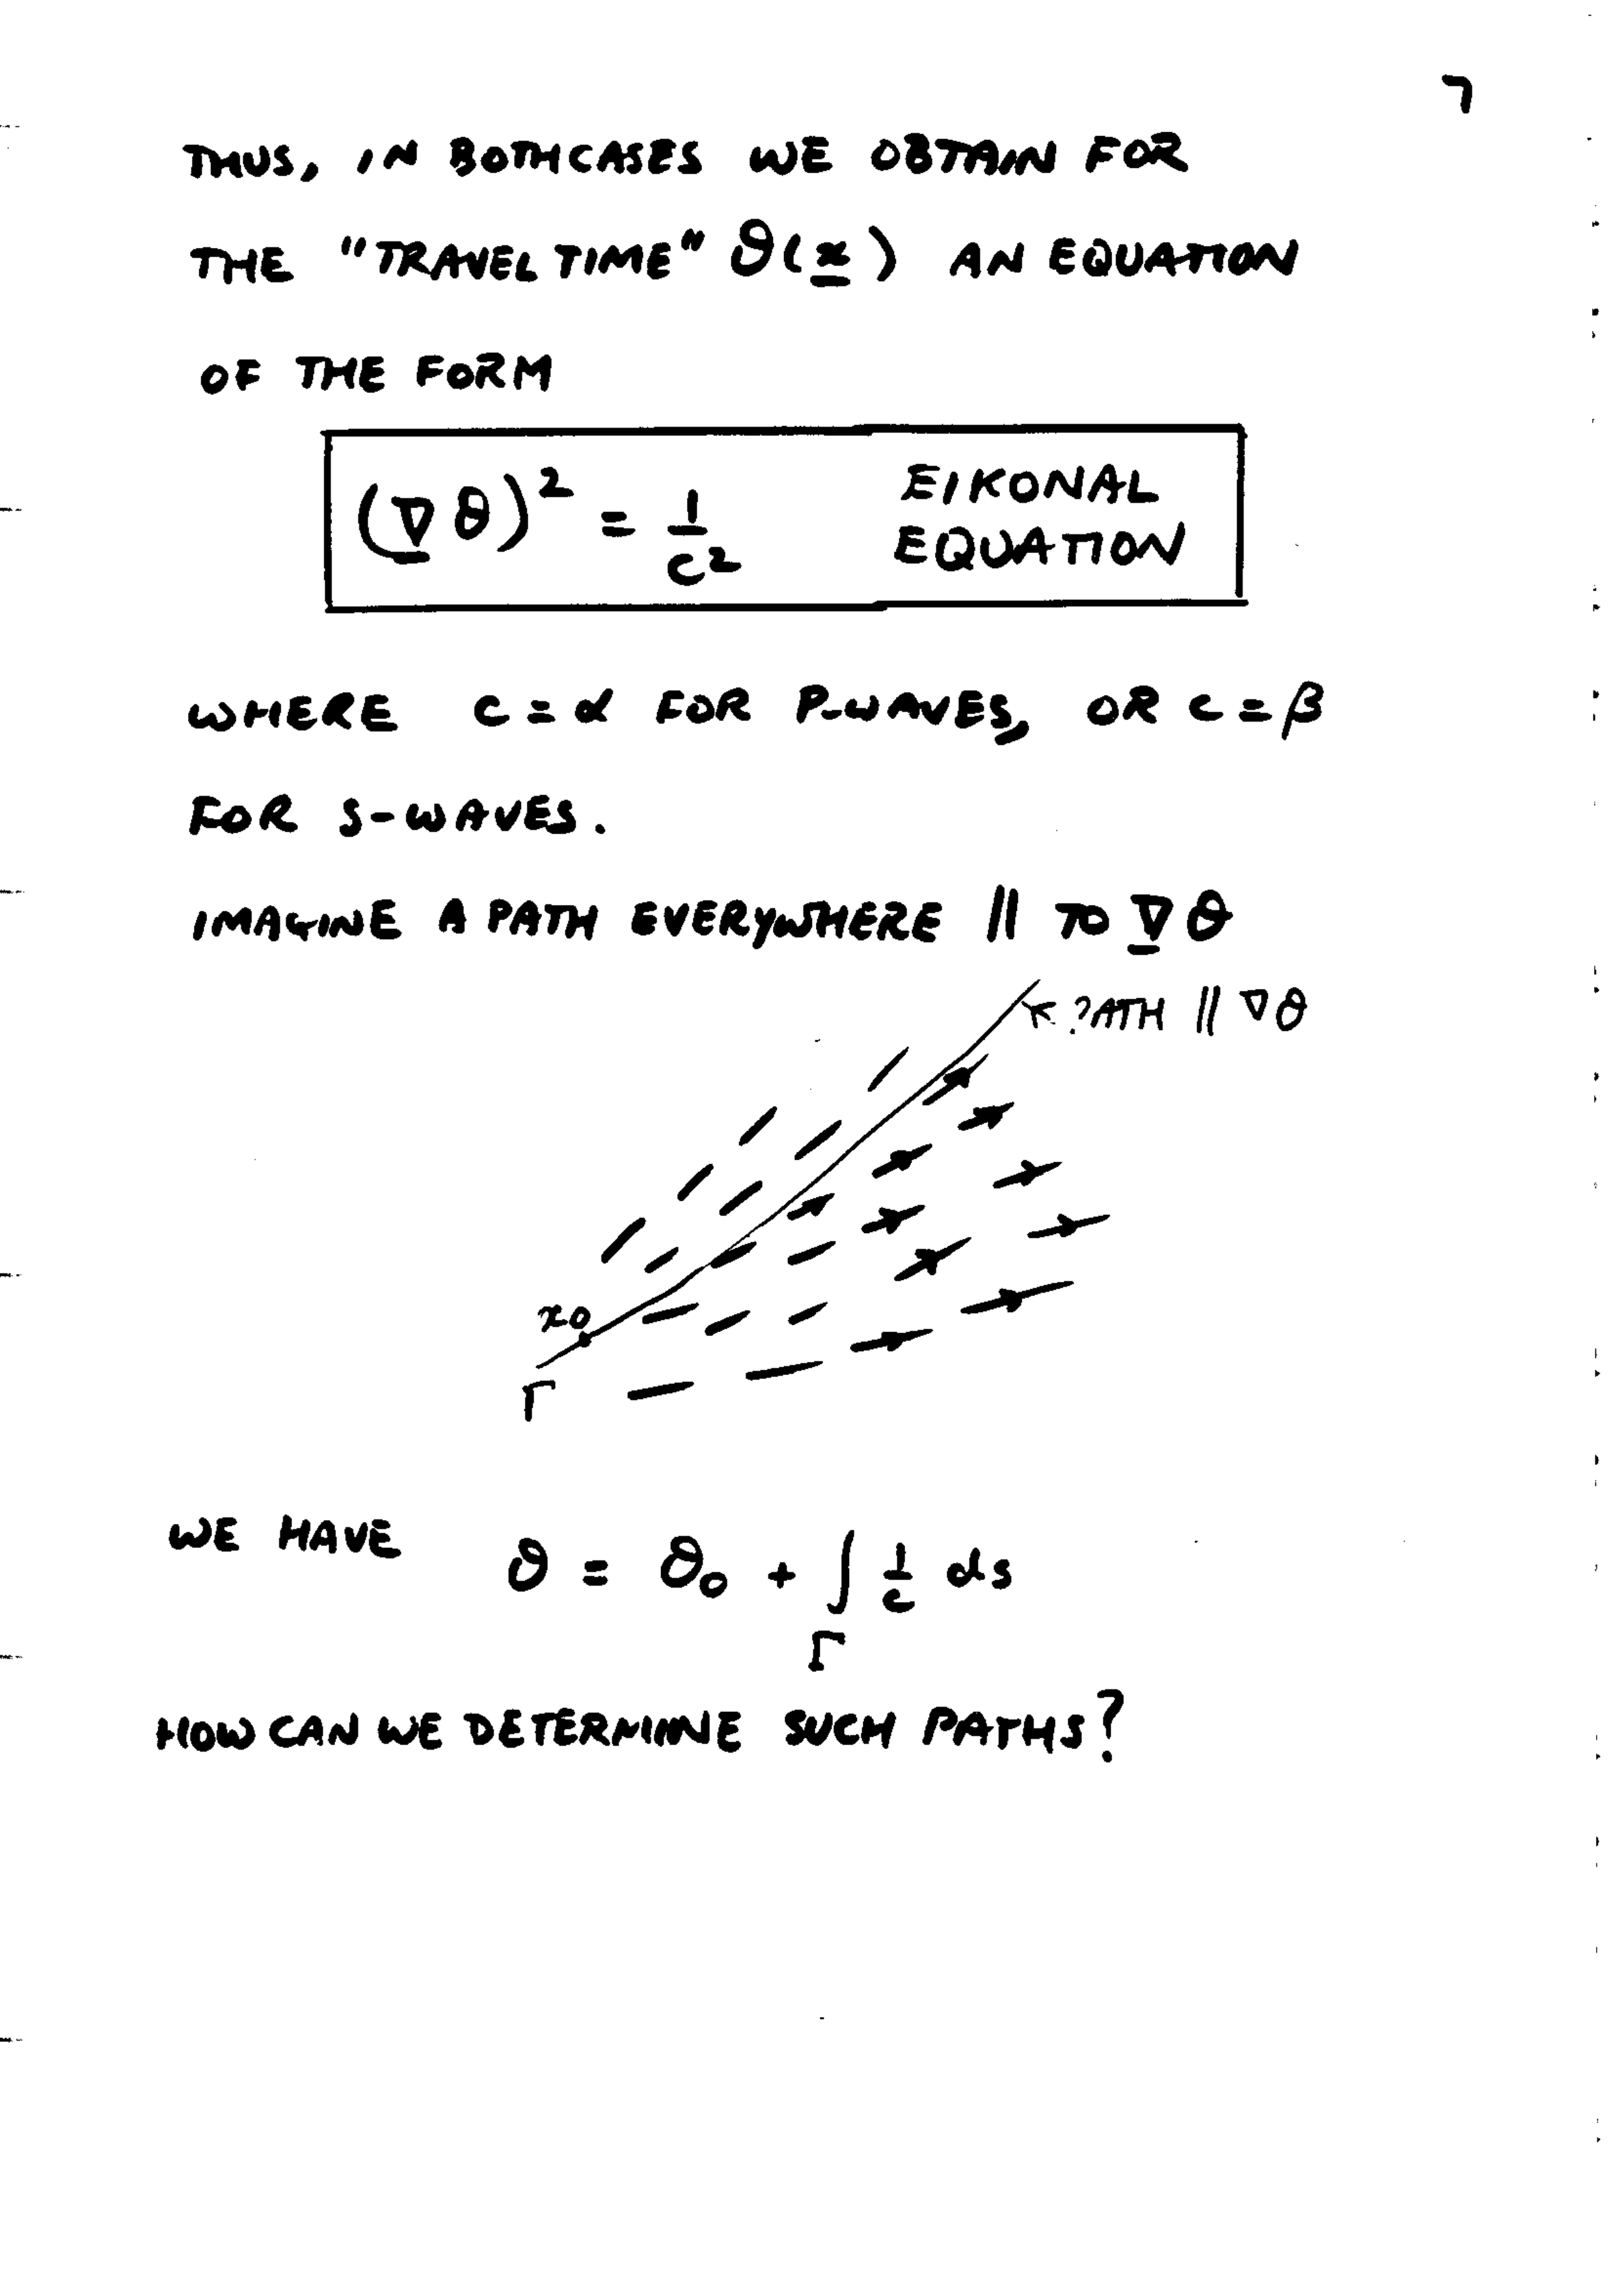 7
THUS, IN BOTH CASES WE OBTAIN FOR
THE "TRAVEL TIME" ϑ(x) AN EQUATION
OF THE FORM
(∇θ)² = 1/c² EIKONAL EQUATION
WHERE C = α FOR P-WAVES, OR C = β
FOR S-WAVES.
IMAGINE A PATH EVERYWHERE || TO ∇θ
PATH || ∇θ
x0
Γ
WE HAVE ϑ = ϑ₀ + ∫ 1/c ds
Γ
HOW CAN WE DETERMINE SUCH PATHS?